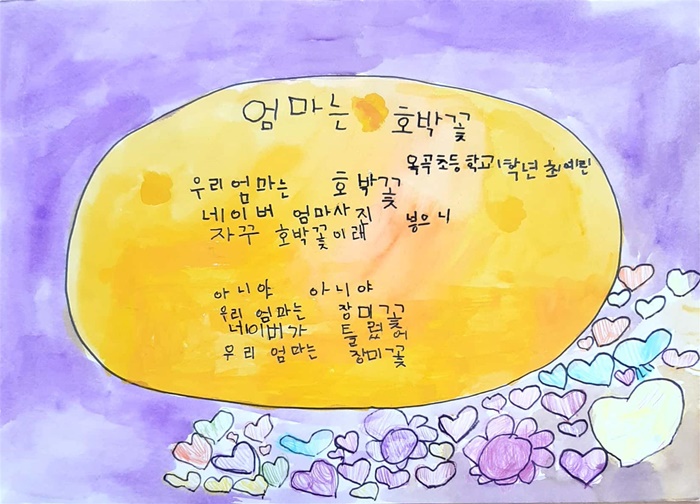 엄마는 호박꽃
목곡초등학교 1학년 최예린
우리 엄마는 호박꽃
네이버 엄마사진 넣으니
자꾸 호박꽃이래
아니야 아니야
우리 엄마는 장미꽃
네이버가 틀렸어
우리 엄마는 장미꽃